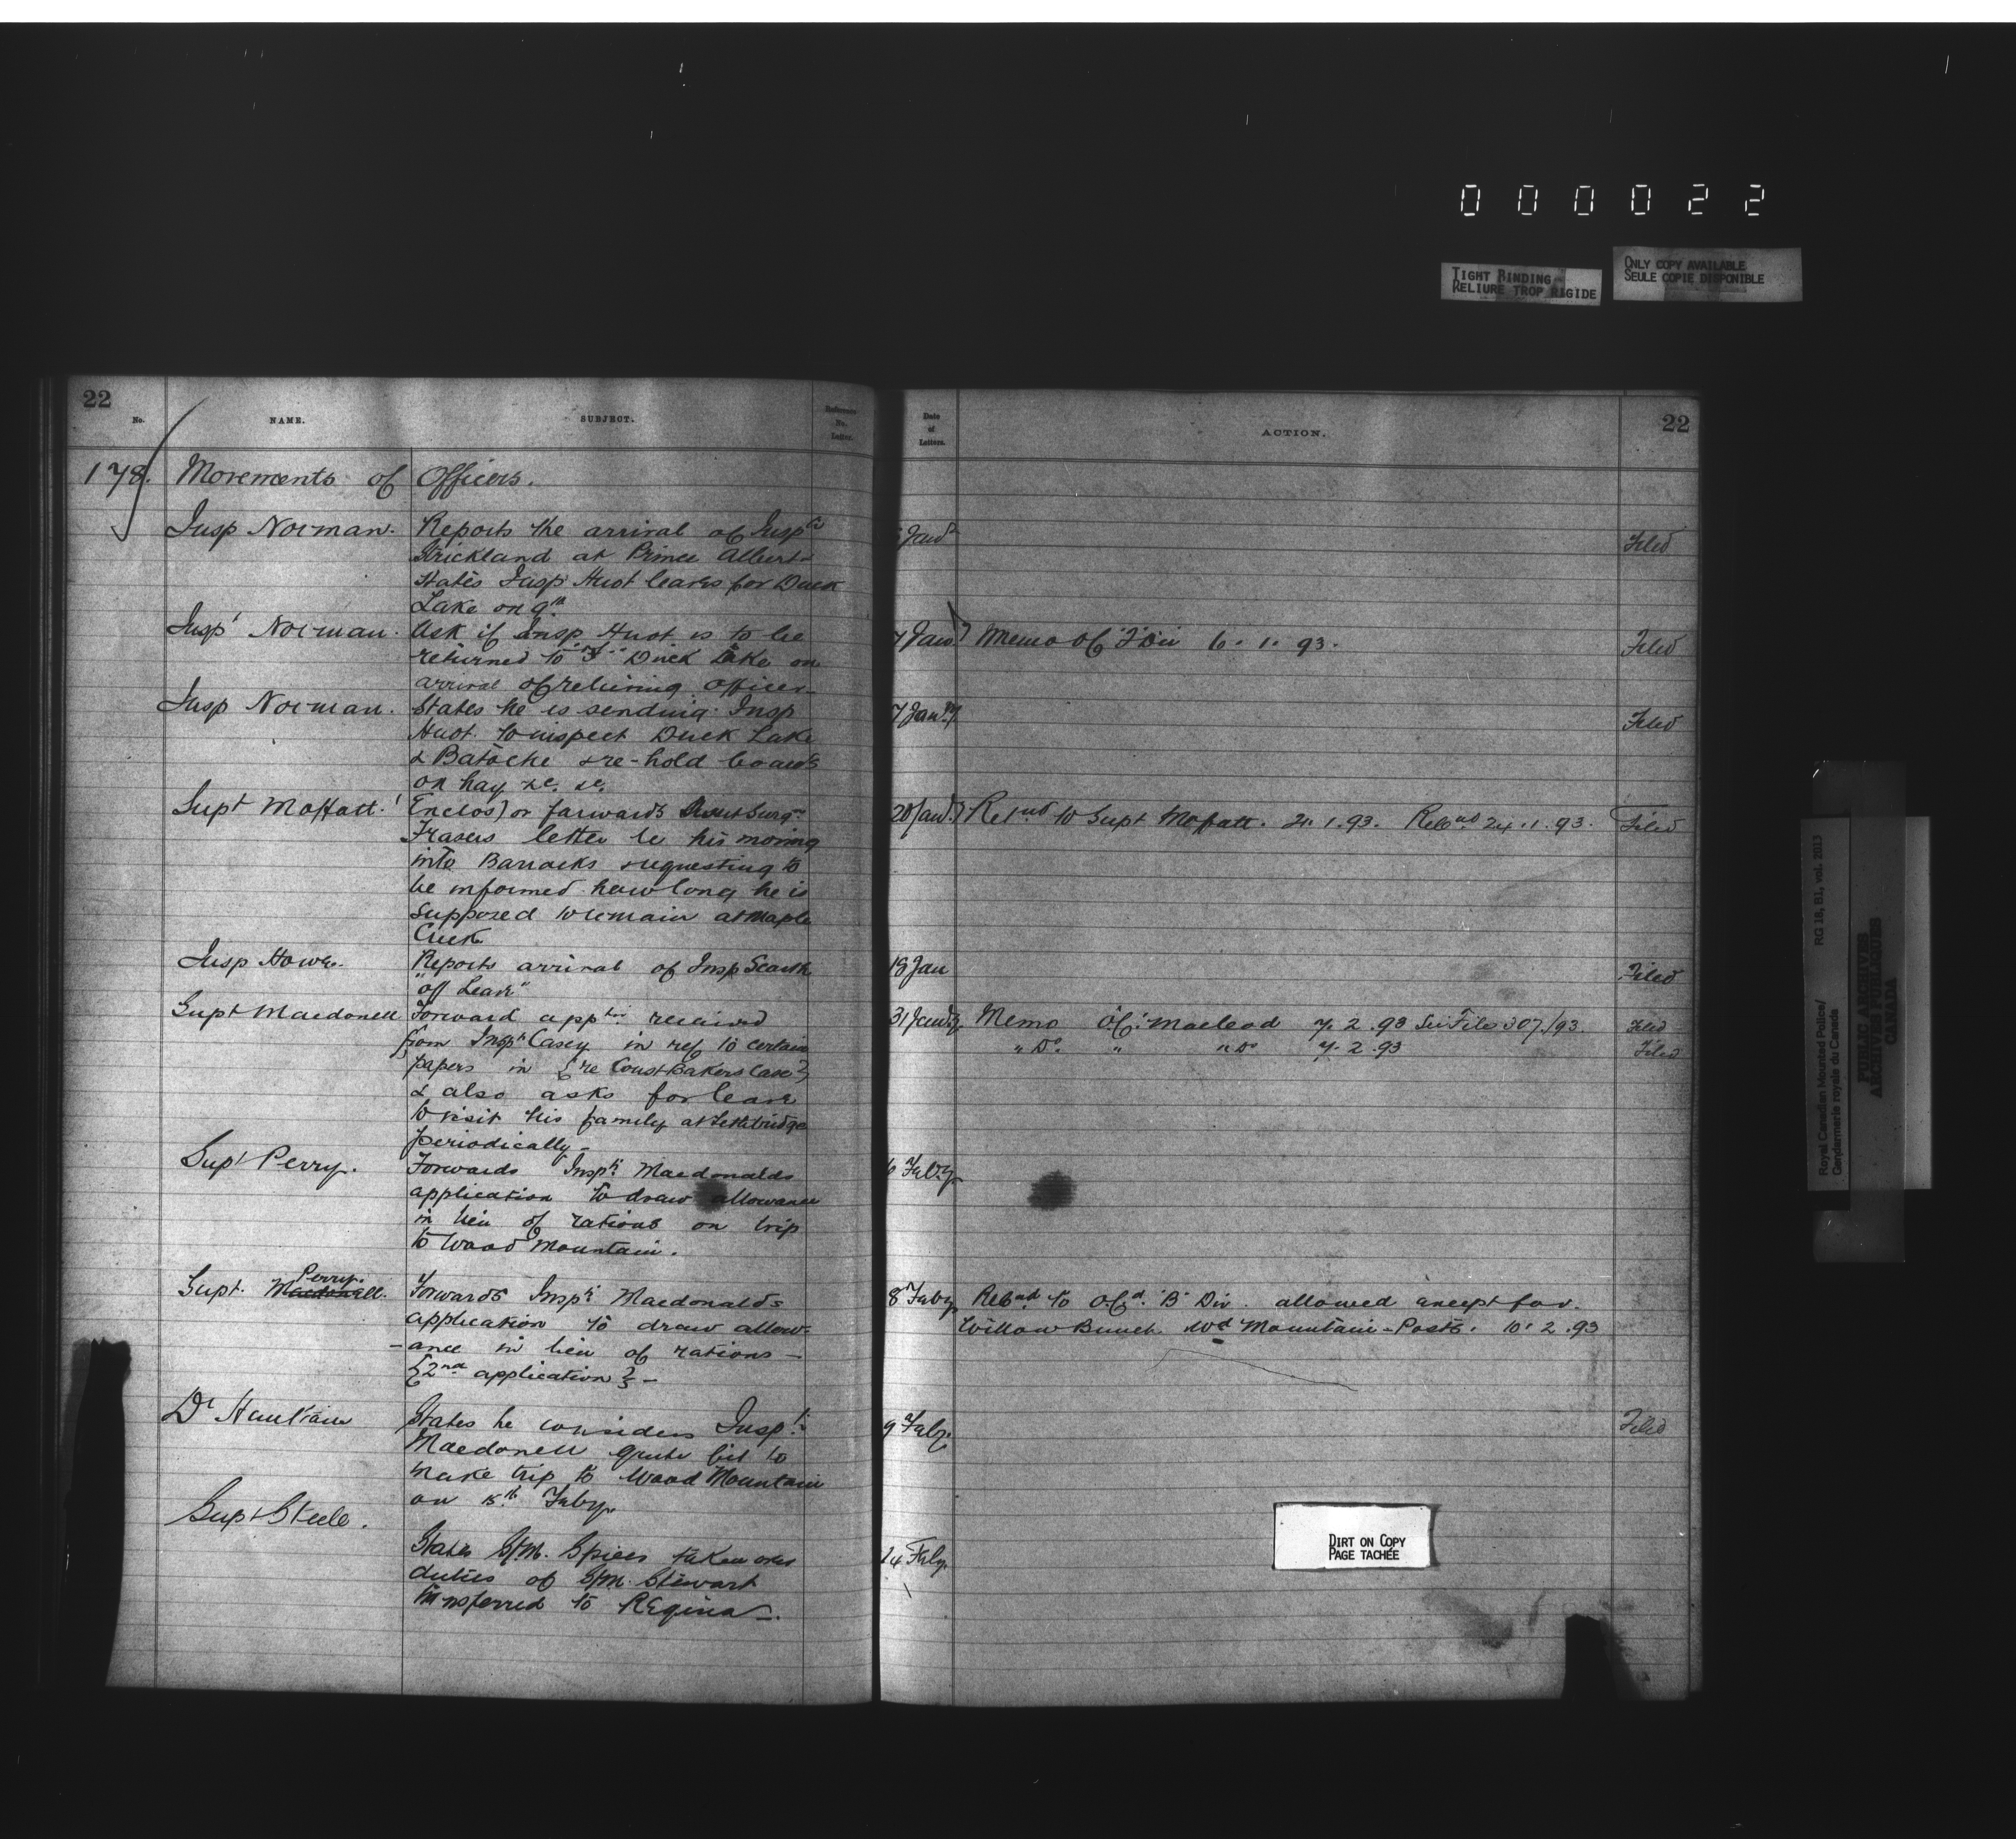 000022
TIGHT BINDING
RELIURE TROP RIGIDE
ONLY COPY AVAILABLE
SEULE COPIE DISPONIBLE
22
No.
NAME.
SUBJECT.
Reference
No.
Letter.
Date
of
Letters.
ACTION.
22
178. Movements of Officers.
Insp Norman. Reports the arrival of Insp
Strickland at Prince Albert
States Insp Huot leaves for Duck
Lake on 9th
Filed
Inspr Norman. Ask if Insp Huot is to be
returned to Duck Lake on
arrival of relieving officer
7 Jany Memo OC "F" Div 6.1.93. Filed
Insp Norman. States he is sending Insp
Huot to inspect Duck Lake
& Batoche & re-hold boards
on hay &c. &c.
7 Jany Filed
Supt Moffatt. Enclos) or forwards Asst Surgn
Frasers letter re his moving
into Barracks & requesting to
be informed how long he is
supposed to remain at Maple
Creek
20 Jany Retnd to Supt Moffatt. 21.1.93. Recnd 24.1.93. Filed
Insp Howe. Reports arrival of Insp Scarth
"off Leave"
18 Jan Filed
Supt Macdonell Forward apptn received
from Inspr Casey in ref to certain
papers in {re Const Bakers Case}
& also asks for leave
to visit his family at Lethbridge
periodically
31 Jany Memo OC. Macleod 7.2.93 See File 307/93. Filed
" Do. " " Do 7.2.93 Filed
Supt Perry. Forwards Inspr Macdonalds
application to draw allowance
in lieu of rations on trip
to Wood Mountain.
6 Feby
Supt. Macdonell. Perry. Forwards Inspr Macdonalds
application to draw allow-
-ance in lieu of rations —
{2nd application} —
8 Feby Retnd to O.Cd. "B" Div. allowed except for
Willow Bunch Wd Mountain Posts. 10.2.93
Dr Haultain States he considers Inspr
Macdonell quite fit to
make trip to Wood Mountain
on 15th Feby.
9 Feby. Filed
Supt Steele.
States S/M. Spicer taken over
duties of S/M. Stewart
transferred to Regina.
14 Feby.
DIRT ON COPY
PAGE TACHÉE
Royal Canadian Mounted Police/
Gendarmerie royale du Canada
RG 18, B1, vol. 2013
PUBLIC ARCHIVES
ARCHIVES PUBLIQUES
CANADA